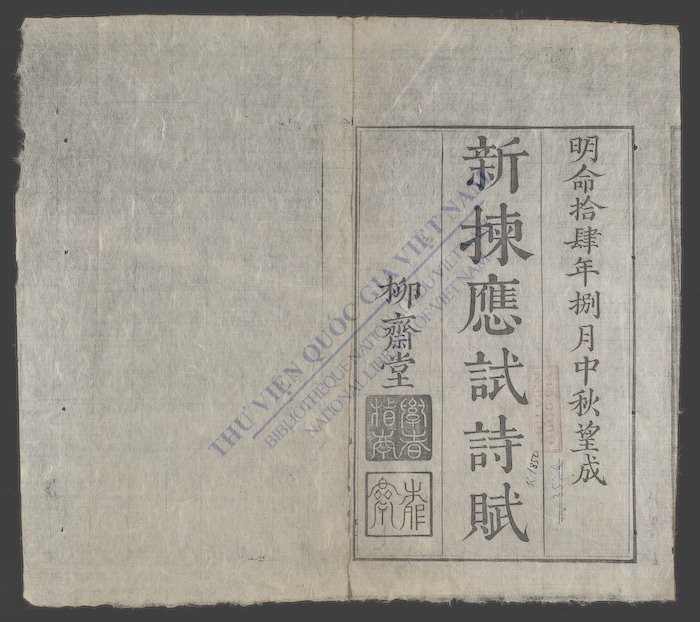 明命拾肆年捌月中秋望成
新揀應試詩賦
柳齋堂
THƯ VIỆN QUỐC GIA VIỆT NAM
BIBLIOTHÈQUE NATIONALE DU VIETNAM
NATIONAL LIBRARY OF VIETNAM